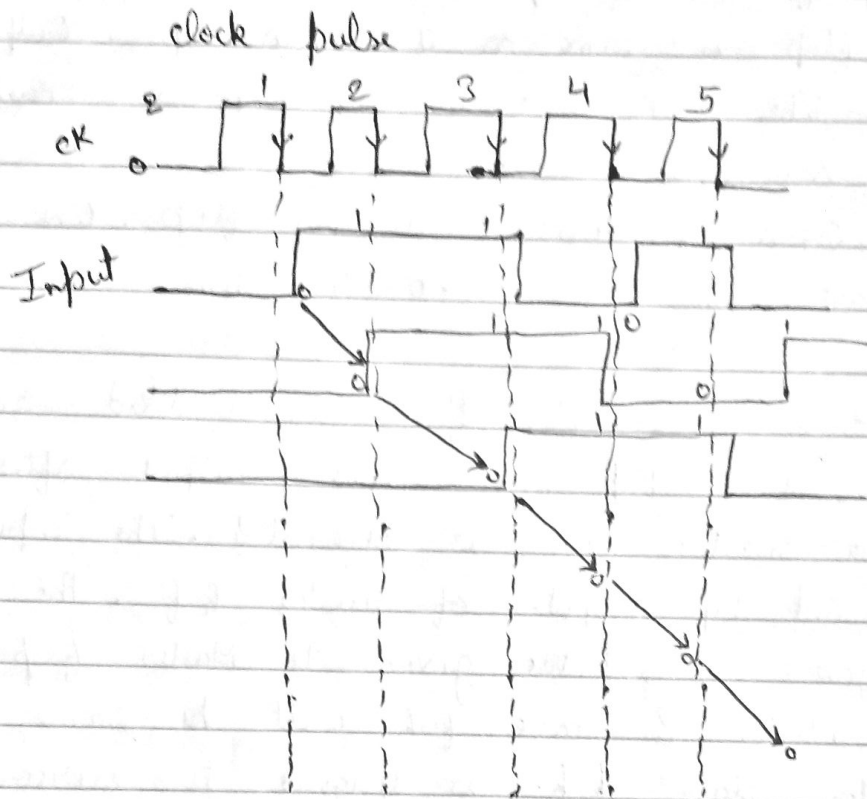 clock pulse
2 1 2 3 4 5
ck 0
1 1 1
Input
0 1 1 0 1
0 0
1 1
0
0
0
0